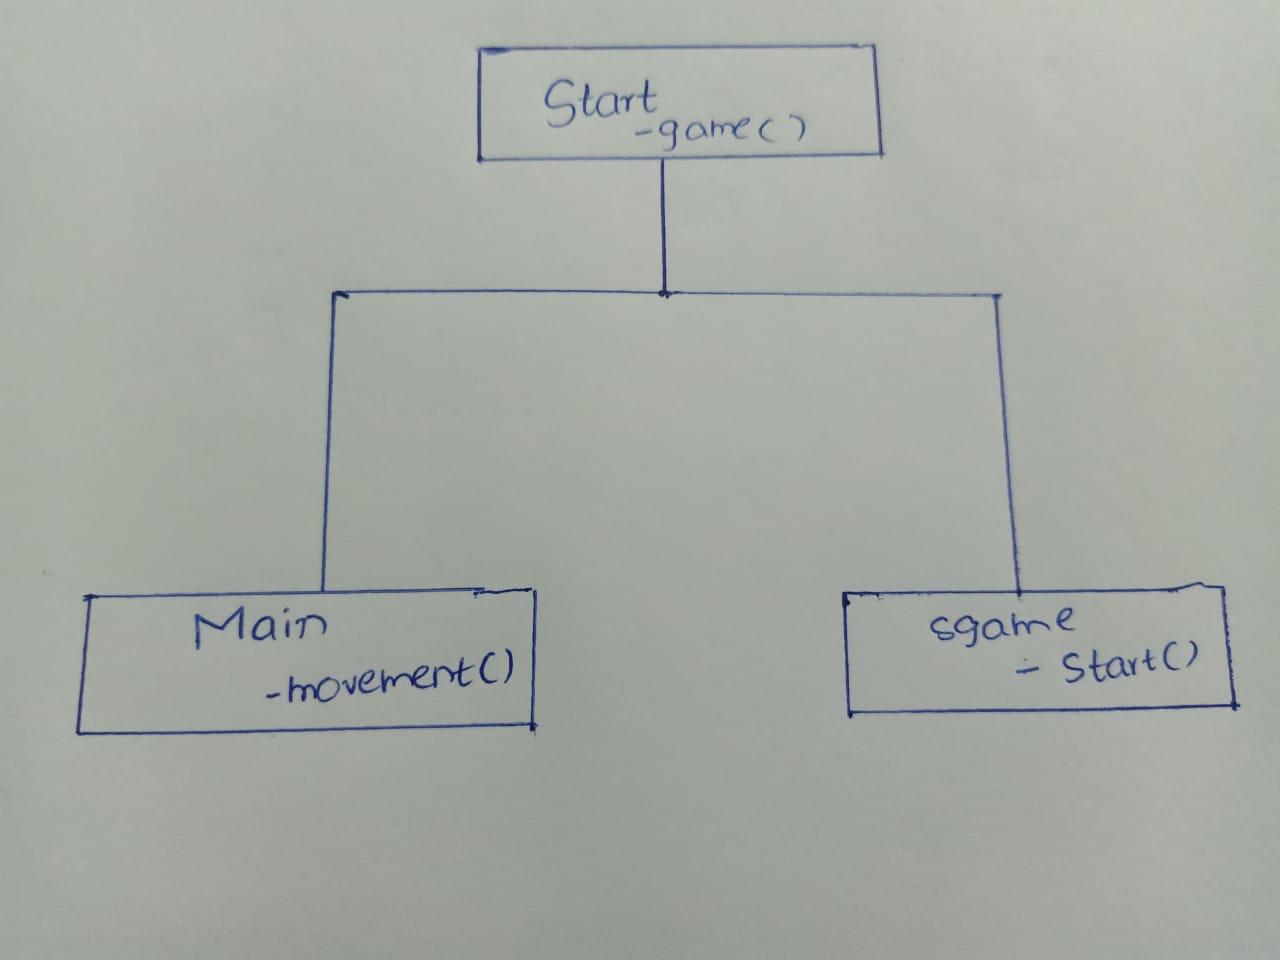 Start
-game()
Main
-movement()
sgame
- Start()